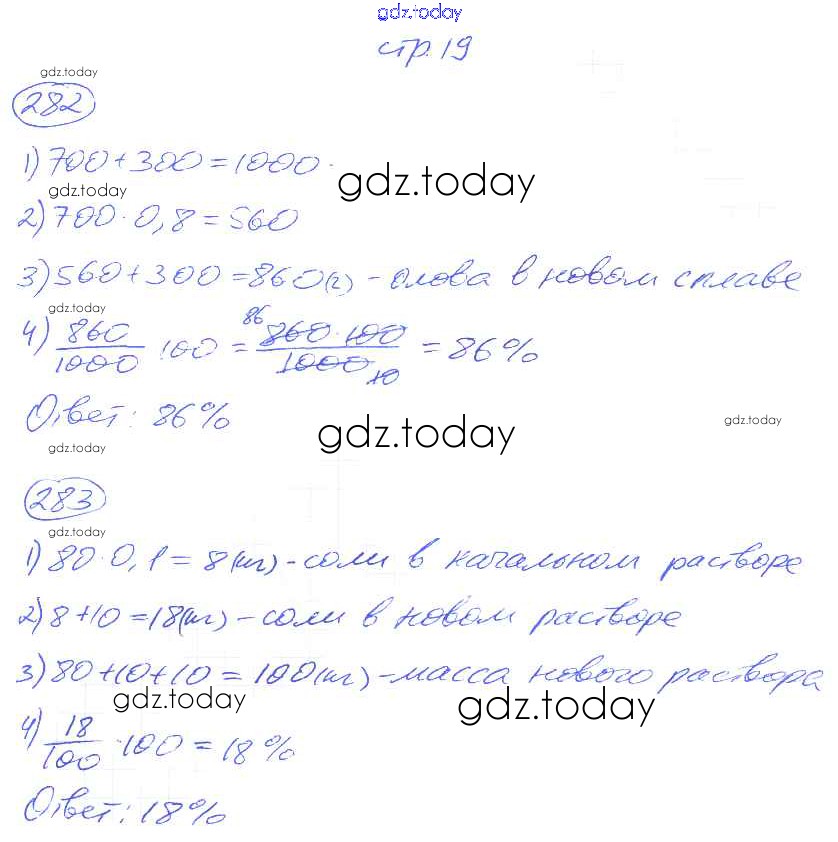 gdz.today
стр. 19
gdz.today
282
1) 700 + 300 = 1000
gdz.today
gdz.today
2) 700 · 0,8 = 560
3) 560 + 300 = 860 (г) - олова в новом сплаве
gdz.today
4) 860/1000 · 100 = 860 · 100/1000 = 86%
86
10
Ответ: 86%
gdz.today
gdz.today
gdz.today
283
gdz.today
1) 80 · 0,1 = 8 (кг) - соли в начальном растворе
2) 8 + 10 = 18 (кг) - соли в новом растворе
3) 80 + 10 + 10 = 100 (кг) - масса нового раствора
gdz.today
gdz.today
4) 18/100 · 100 = 18%
Ответ: 18%